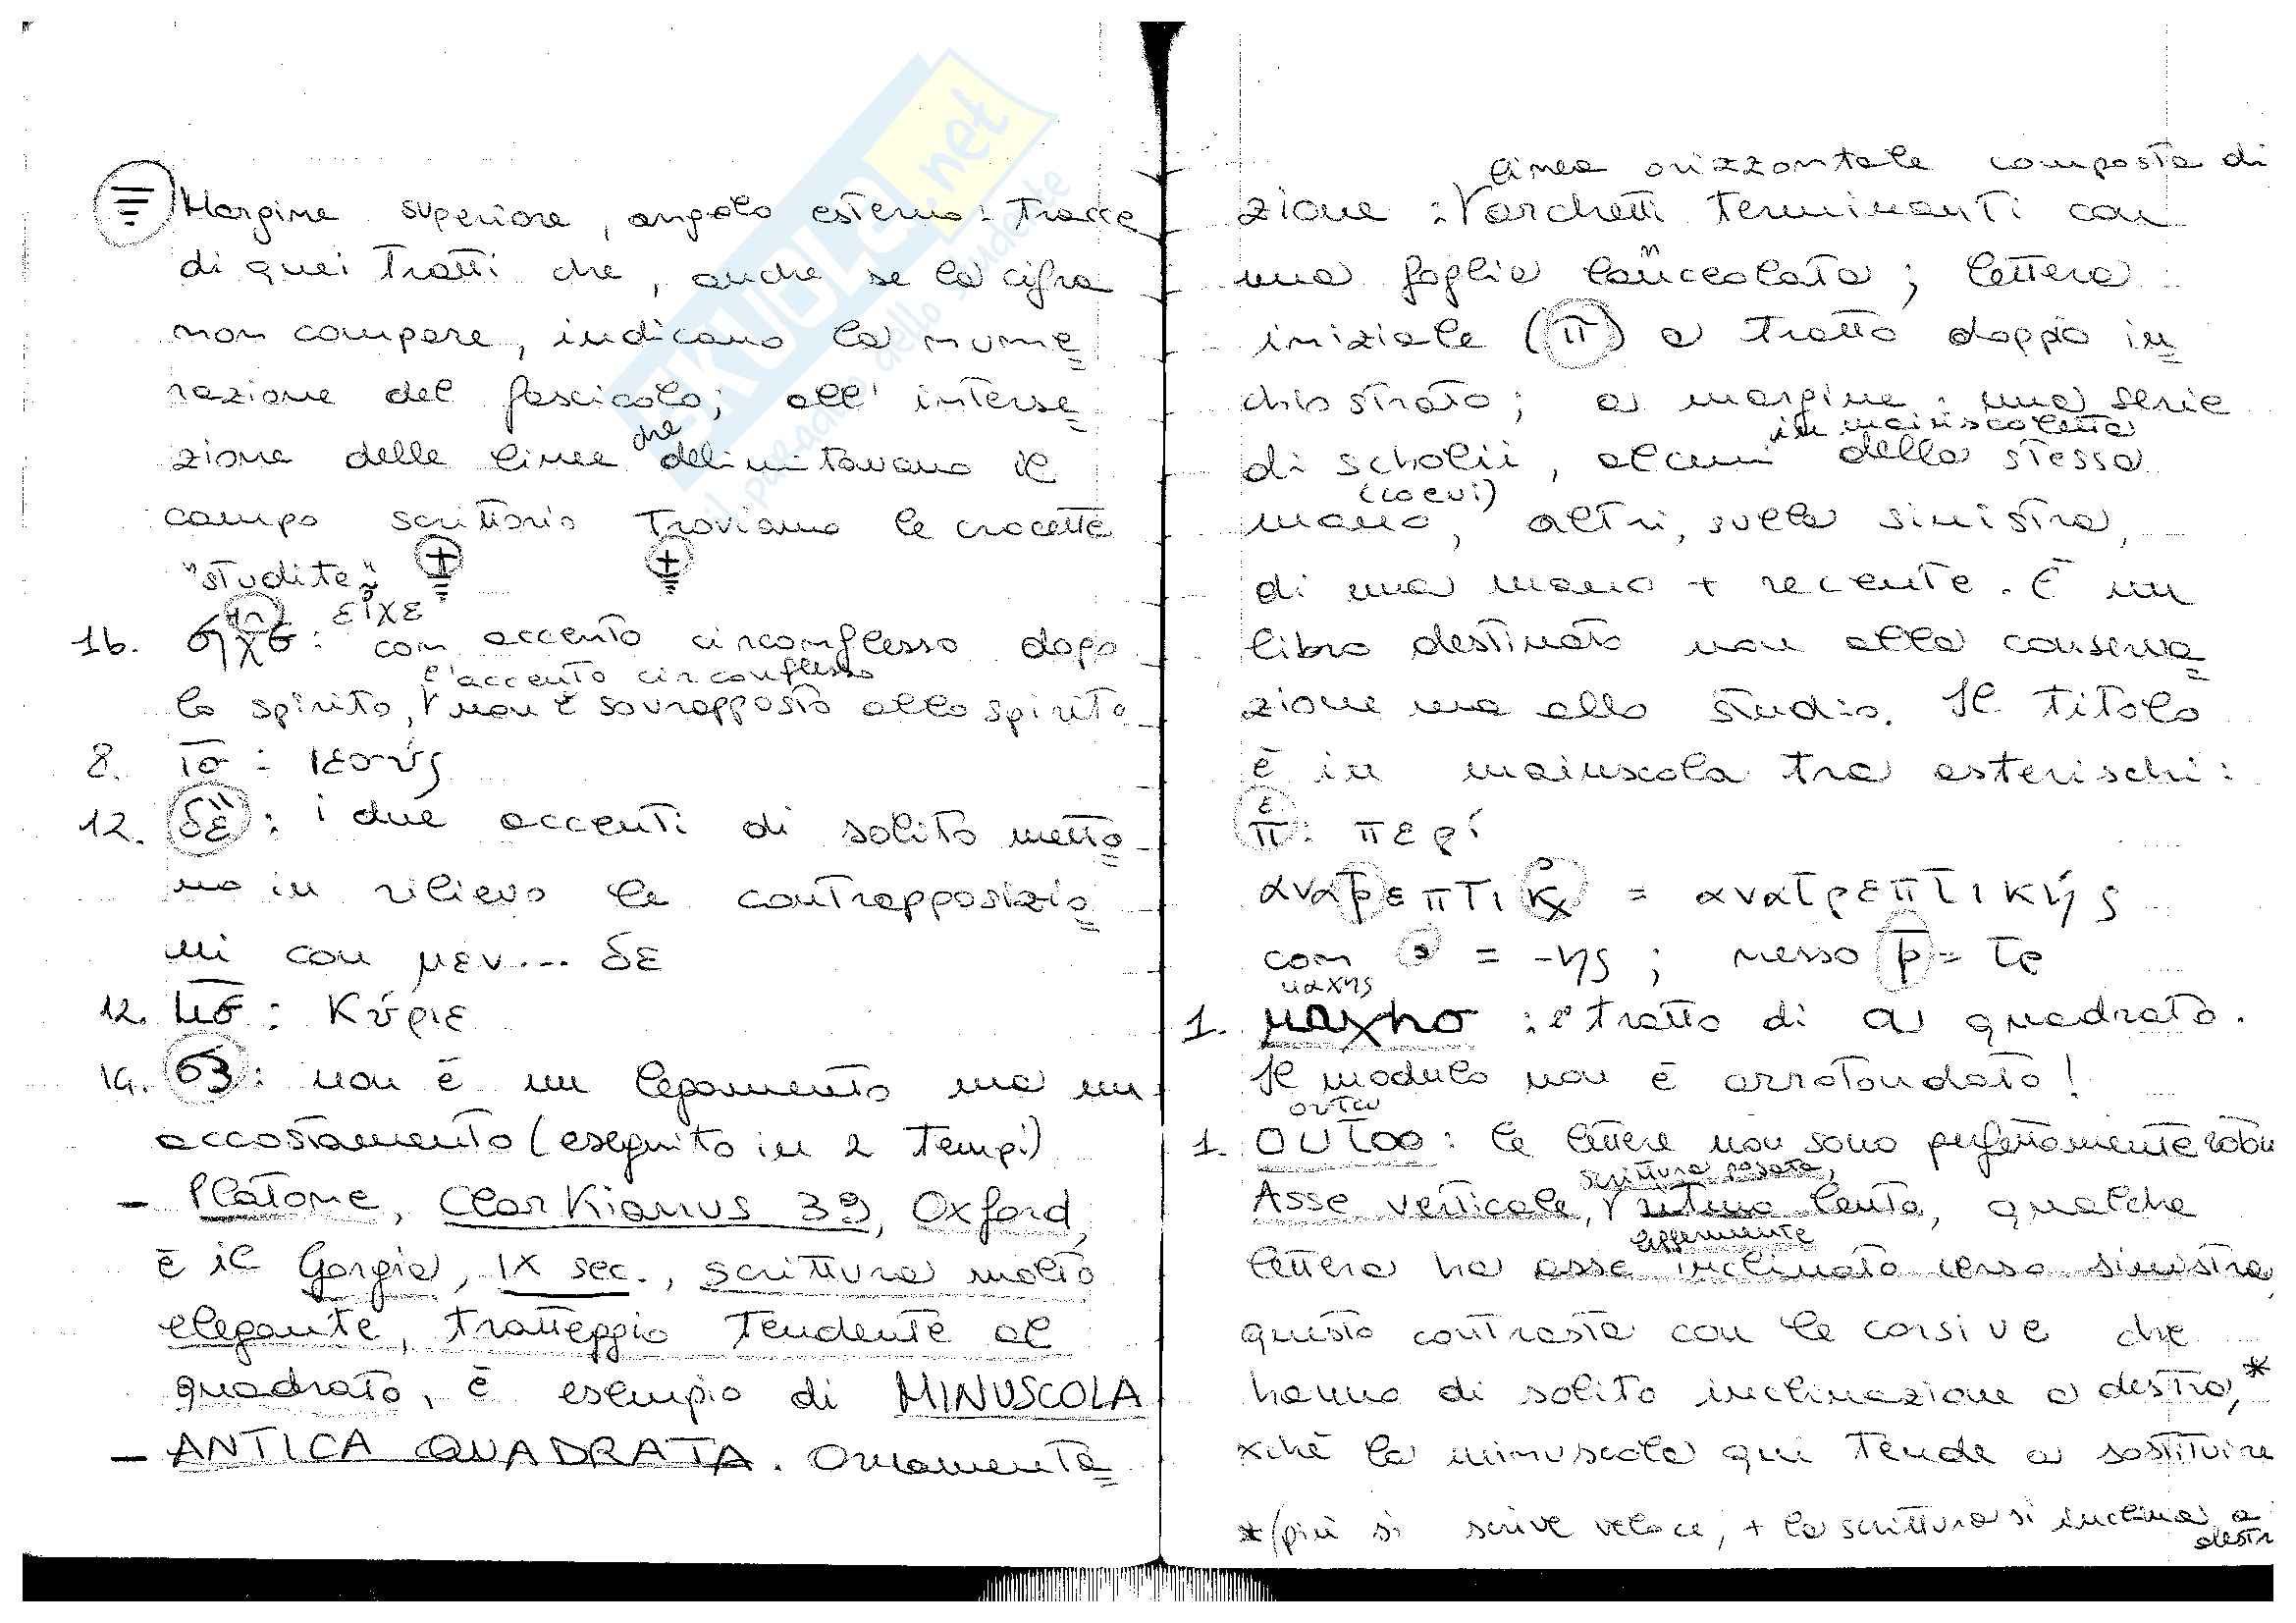 Margine superiore, angolo esterno: tracce
di quei tratti che, anche se la cifra
non compare, indicano la nume=
razione del fascicolo; all'interse=
zione delle linee che delimitavano il
campo scrittorio troviamo le crocette
"studite"
εἶχε
16. : con accento circonflesso dopo
lo spirito, l'accento circonflesso non è sovrapposto allo spirito
8. ισ : ιεσύς
12. δε : i due accenti di solito metto=
no in rilievo le contrapposizio=
ni con μεν... δε
12. : κύριε
14. : non è un legamento ma un
accostamento (eseguito in 2 tempi)
- Platone, Clarkianus 39, Oxford,
è il Gorgia, IX sec., scrittura molto
elegante, tratteggio tendente al
quadrato, è esempio di MINUSCOLA
- ANTICA QUADRATA. Ornamenta=
zione: linea orizzontale composta di archetti terminanti con
una foglia lanceolata; lettera
iniziale (π) a tratto doppio in=
chiostrato; a margine: una serie
di scholii, alcuni in maiuscoletta della stessa
mano (coevi), altri, sulla sinistra,
di una mano + recente. È un
libro destinato non alla conserva=
zione ma allo studio. Il titolo
è in maiuscola tra asterischi:
π ε : περί
ανατρεπτικ = ανατρεπτικής
con = -ης; nesso = τρ
μαχης
1. : il tratto di α quadrato.
Il modulo non è arrotondato!
ουτω
1. ουτοο : le lettere non sono perfettamente
Asse verticale, scrittura posata, ritmo lento, qualche
lettera ha asse leggermente inclinato verso sinistra,
questo contrasta con le corsive che
hanno di solito inclinazione a destra,*
xché la minuscola qui tende a sostituire
*(più si scrive veloce, + la scrittura si inclina a destr
SKUOLA.net
il paradiso dello studente